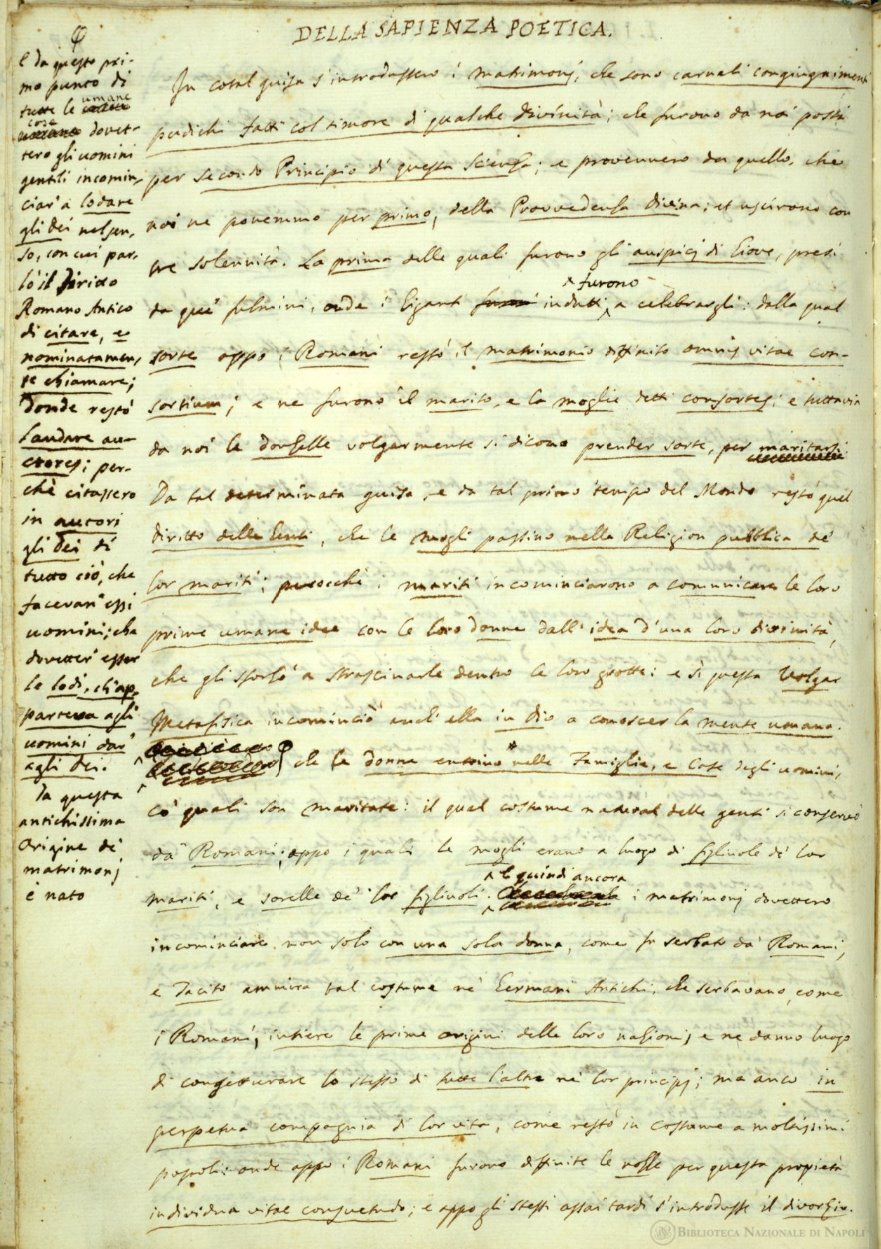 DELLA SAPIENZA POETICA.
In cotal guisa s'introdussero i matrimonj, che sono carnali congiugnimenti
pudichi fatti col timore di qualche divinità; che furono da noi posti
per secondo Principio di questa Scienza; e provennero da quello, che
noi ne ponemmo per primo, della Provvedenza divina; et uscirono con
tre solennità. La prima delle quali furono gli auspicj di Giove, presi
furono
da que' fulmini, onde i Giganti indutti a celebrargli: dalla qual
sorte appo i Romani restò il matrimonio diffinito omnis vitae con-
sortium; e ne furono il marito, e la moglie detti consortes; e tuttavia
da noi le donzelle volgarmente si dicono prender sorte, per maritarsi
Da tal determinata guisa, e da tal primo tempo del Mondo restò quel
diritto delle Genti, che le mogli passino nella Religion pubblica de'
lor mariti; perocchè i mariti incominciarono a comunicare le loro
prime umane idee con le loro donne dall'idea d'una loro divinità,
che gli sforzò a strascinarle dentro le loro grotte: e sì questa volgar
Metafisica incominciò anch'ella in Dio a conoscer la mente umana.
φ
che le donne entrino nelle Famiglie, e Case degli uomini,
co' quali son maritate: il qual costume natural delle genti si conservò
da' Romani; appo i quali le mogli erano a luogo di figliuole de' lor
mariti, e sorelle de' lor figliuoli. E quindi ancora i matrimonj dovettero
incominciare, non solo con una sola donna, come fu serbato da' Romani,
e Tacito ammira tal costume ne' Germani Antichi, che serbavano, come
i Romani, intiere le prime origini delle loro nazioni; e ne danno luogo
di congetturare lo stesso di tutte l'altre ne' lor principj; ma anco in
perpetua compagnia di lor vita, come restò in costume a moltissimi
popoli: onde appo i Romani furono diffinite le nozze per questa propietà
individua vitae consuetudo; e appo gli stessi assai tardi s'introdusse il divorzio.
φ
E da questo pri-
mo punto di
tutte le umane
cose dovet-
tero gli uomini
gentili incomin-
ciar' a lodare
gli dei nel sen-
so, con cui par-
lò il Diritto
Romano Antico
di citare, e
nominatamen-
te chiamare;
donde restò
laudare auc-
ctores; per-
chè citassero
in autori
gli dei di
tutto ciò, che
facevan' essi
uomini; che
dovetter' esser
le lodi, ch'ap-
parteneva agli
uomini dar'
agli dei.
Da questa
antichissima
origine de'
matrimonj
è nato
BIBLIOTECA NAZIONALE DI NAPOLI